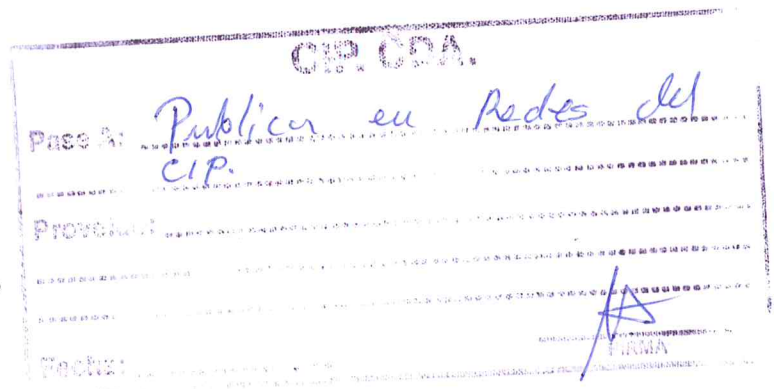 CIP. CDA.
Pase A: Publicar en Redes del
CIP.
Proveido:
Fecha:
FIRMA